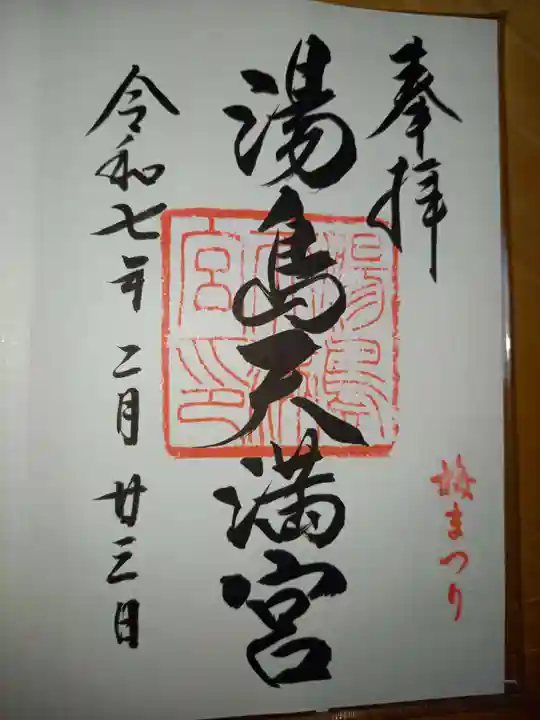 奉拝
梅まつり
湯島天満宮
湯島天満宮印
令和七年二月廿三日